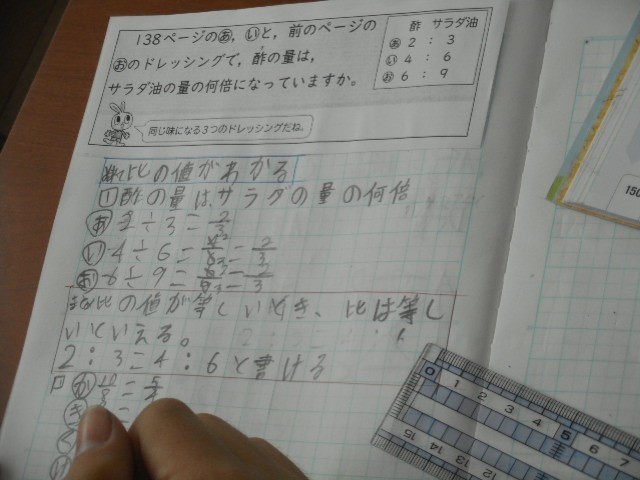 138ページのあ，いと，前のページの
おのドレッシングで，酢の量は，
サラダ油の量の何倍になっていますか。
酢 サラダ油
あ 2 : 3
い 4 : 6
お 6 : 9
同じ味になる3つのドレッシングだね。
比の値がわかる
1 酢の量は、サラダの量の何倍
あ 2÷3=2/3
い 4÷6=4/6=2/3
お 6÷9=6/9=2/3
比の値が等しいとき、比は等し
いといえる。
2:3=4:6と書ける
か 20/8=5/2
き =
0 1 2 3 4 5 6 7
15 14 13 12 11 10
150